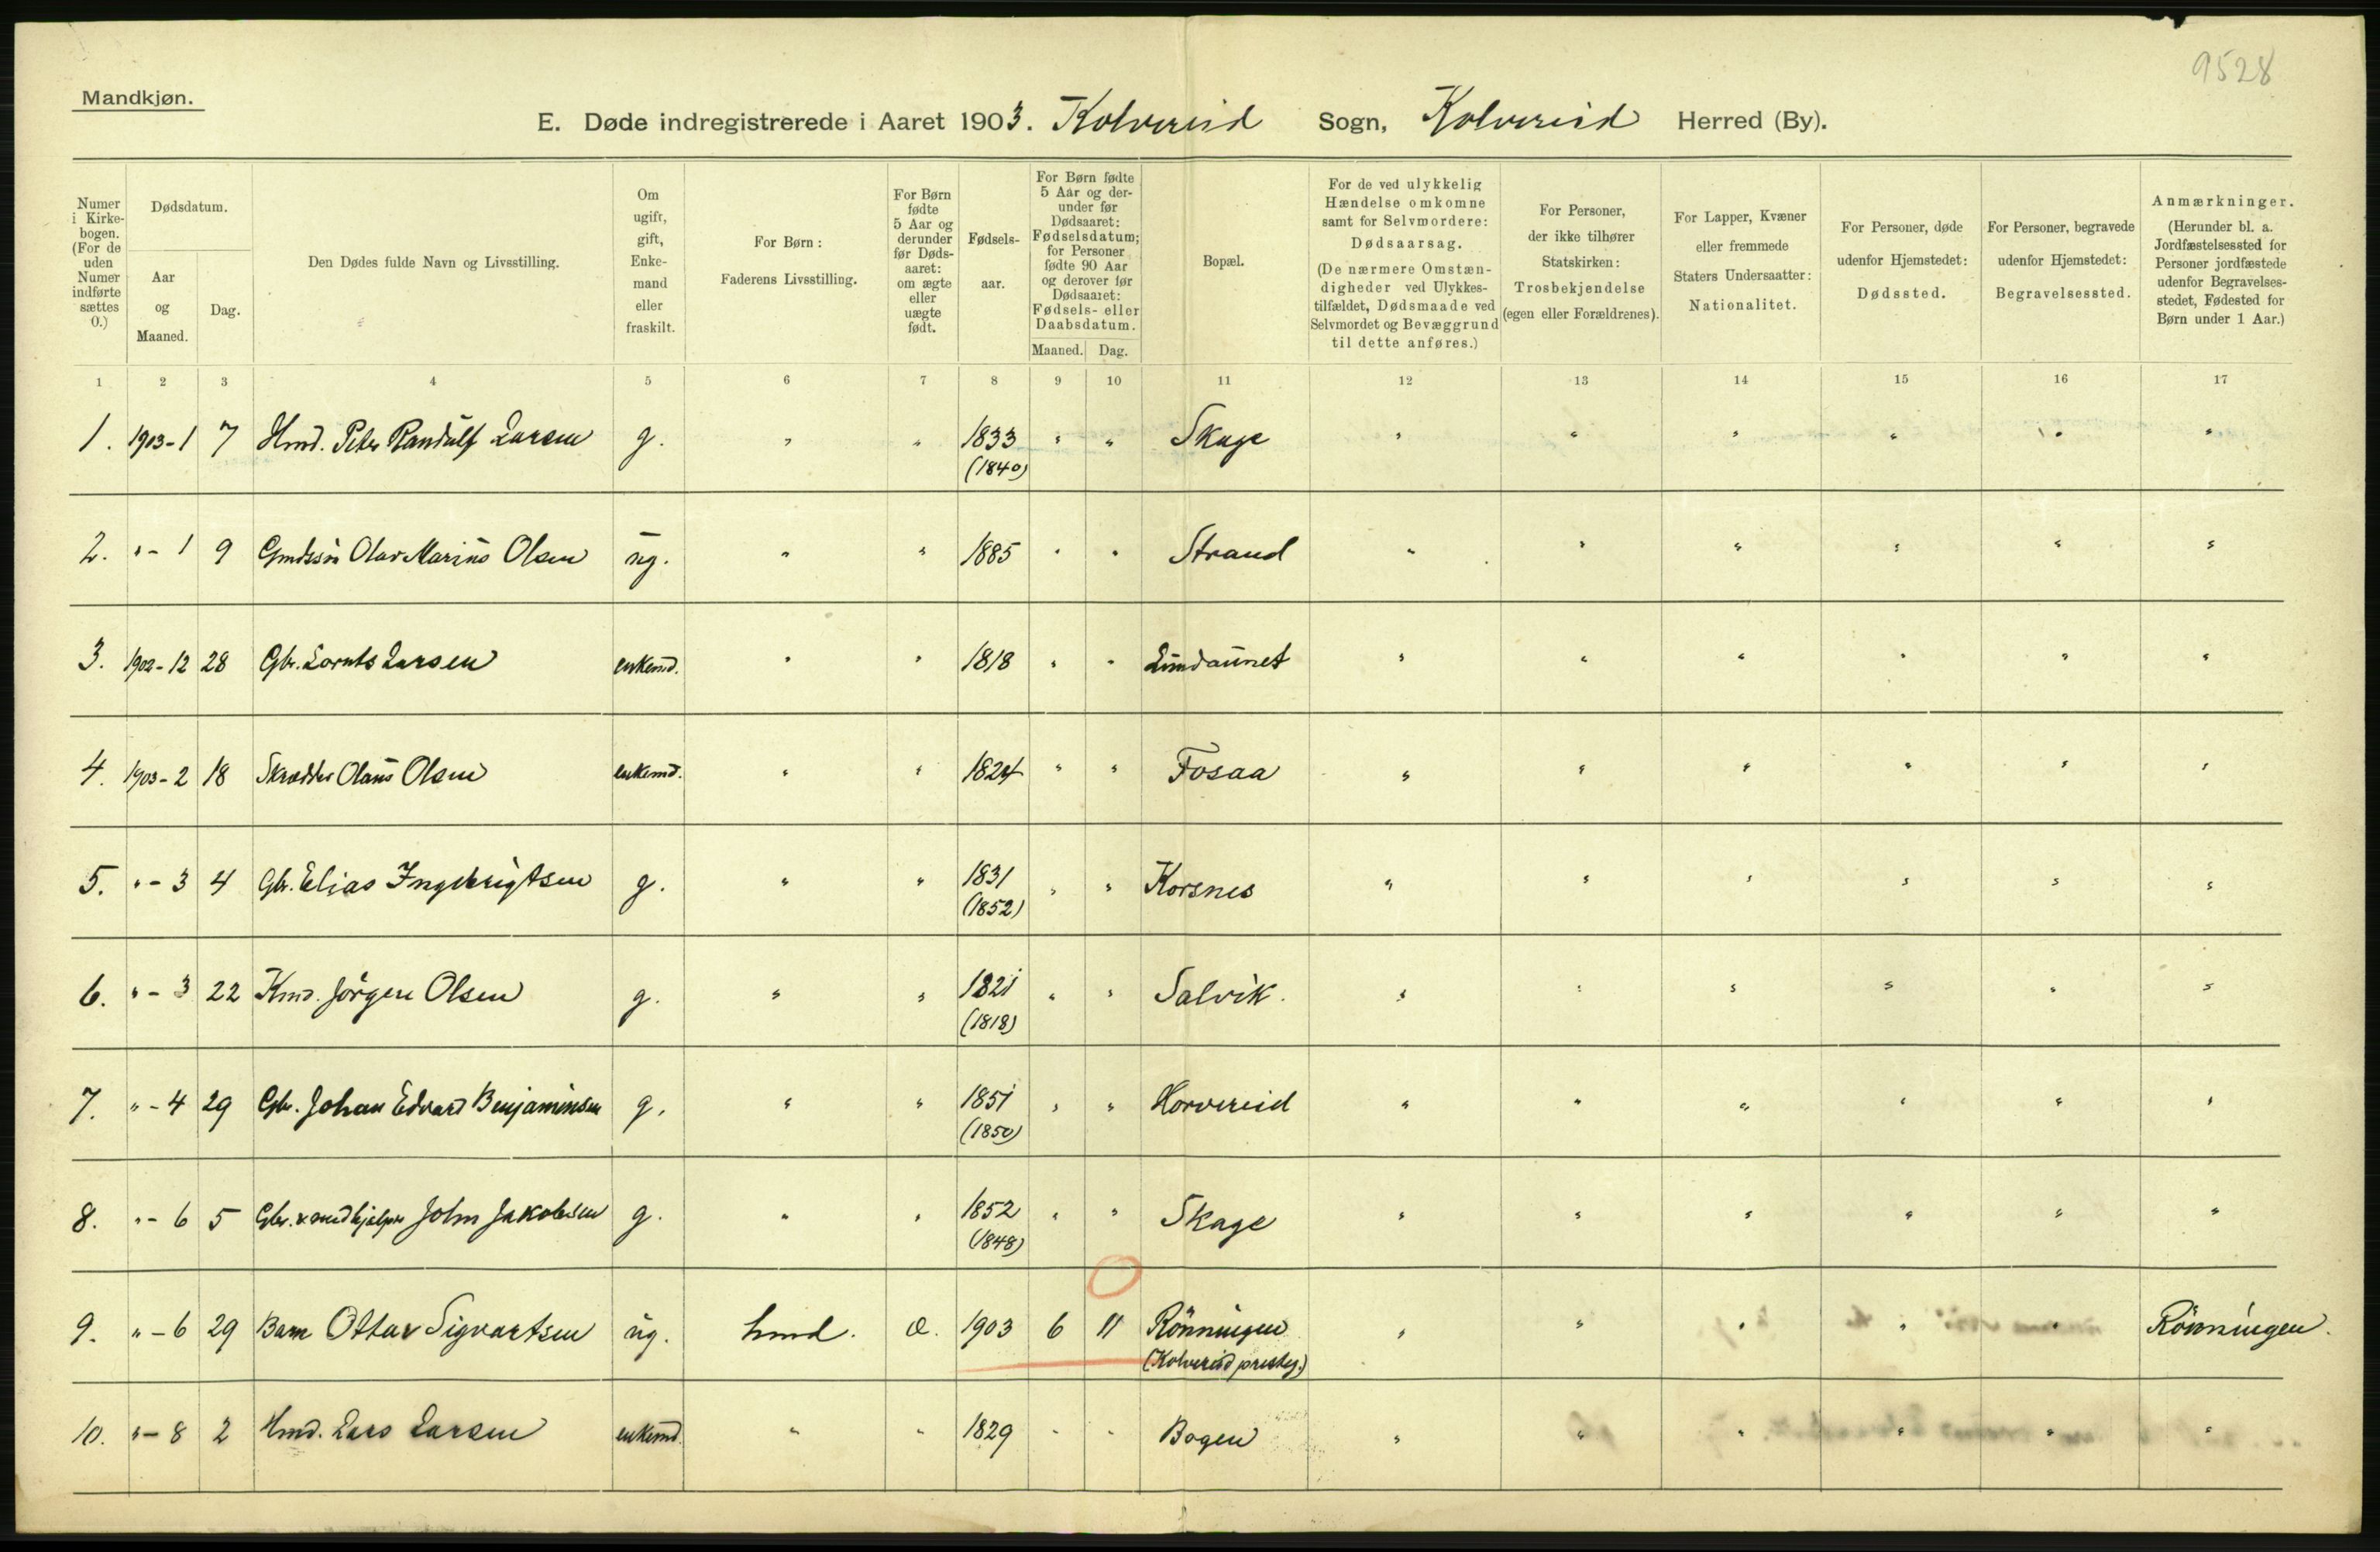 9528
Mandkjøn.
E. Døde indregistrerede i Aaret 1903. Kolvereid Sogn, Kolvereid Herred (By).
Numer i Kirkebogen. (For de uden Numer indførte sættes 0.)
Dødsdatum.
Aar og Maaned.
Dag.
Den Dødes fulde Navn og Livsstilling.
Om ugift, gift, Enkemand eller fraskilt.
For Børn: Faderens Livsstilling.
For Børn fødte 5 Aar og derunder før Dødsaaret: om ægte eller uægte født.
Fødselsaar.
For Børn fødte 5 Aar og derunder før Dødsaaret: Fødselsdatum; for Personer fødte 90 Aar og derover før Dødsaaret: Fødsels- eller Daabsdatum.
Maaned. Dag.
Bopæl.
For de ved ulykkelig Hændelse omkomne samt for Selvmordere: Dødsaarsag. (De nærmere Omstændigheder ved Ulykkestilfældet, Dødsmaade ved Selvmordet og Bevæggrund til dette anføres.)
For Personer, der ikke tilhører Statskirken: Trosbekjendelse (egen eller Forældrenes).
For Lapper, Kvæner eller fremmede Staters Undersaatter: Nationalitet.
For Personer, døde udenfor Hjemstedet: Dødssted.
For Personer, begravede udenfor Hjemstedet: Begravelsessted.
Anmærkninger. (Herunder bl. a. Jordfæstelsessted for Personer jordfæstede udenfor Begravelsesstedet, Fødested for Børn under 1 Aar.)
1 2 3 4 5 6 7 8 9 10 11 12 13 14 15 16 17
1. 1903-1 7 Hmd. Peter Randulf Larsen g. " " 1833 " " Skage " " " " " "
(1840)
2. "-1 9 Gmdssøn Olav Marius Olsen ug. " " 1885 " " Strand " " " " " "
3. 1902-12 28 Gbr. Lornts Larsen enkemd. " " 1818 " " Lindaunet " " " " " "
4. 1903-2 18 Skrædder Olaus Olsen enkemd. " " 1824 " " Fosaa " " " " " "
5. "-3 4 Gbr. Elias Ingebrigtsen g. " " 1831 " " Korsnes " " " " " "
(1852)
6. "-3 22 Kmd. Jörgen Olsen g. " " 1821 " " Salvik. " " " " " "
(1818)
7. "-4 29 Gbr. Johan Edvard Benjaminsen g. " " 1851 " " Horvereid " " " " " "
(1850)
8. "-6 5 Gbr. & medhjelper John Jakobsen g. " " 1852 " " Skage " " " " " "
(1848)
9. "-6 29 Barn Ottar Sigvartsen ug. hmd. æ. 1903 6 11 Rönningen " " " " " Rönningen.
(Kolvereid presteg.)
10. "-8 2 Hmd. Lars Larsen enkemd. " " 1829 " " Bogen " " " " " "